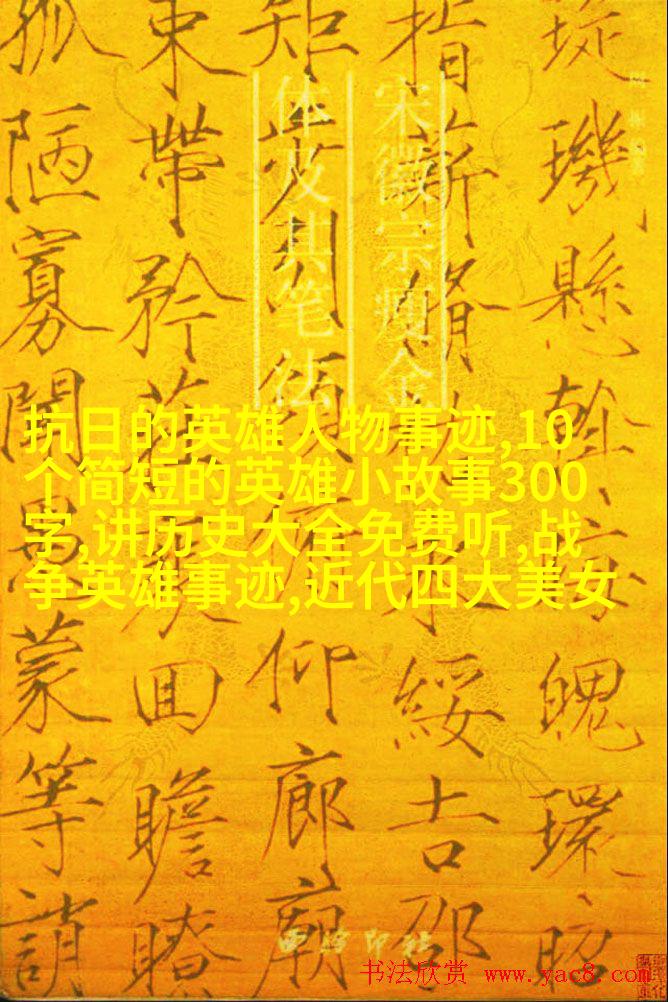 璇璣懸斡晦魄環照
指薪脩祜永綏吉邵
矩步引領俯仰廊廟
束帶矜莊徘回瞻眺
孤陋寡聞愚蒙等誚
宋徽宗瘦金
体及其笔法
抗日的英雄人物事迹,10
个简短的英雄小故事300
字,讲历史大全免费听,战
争英雄事迹,近代四大美女
西泠印社
书法欣赏 www.yac8.com